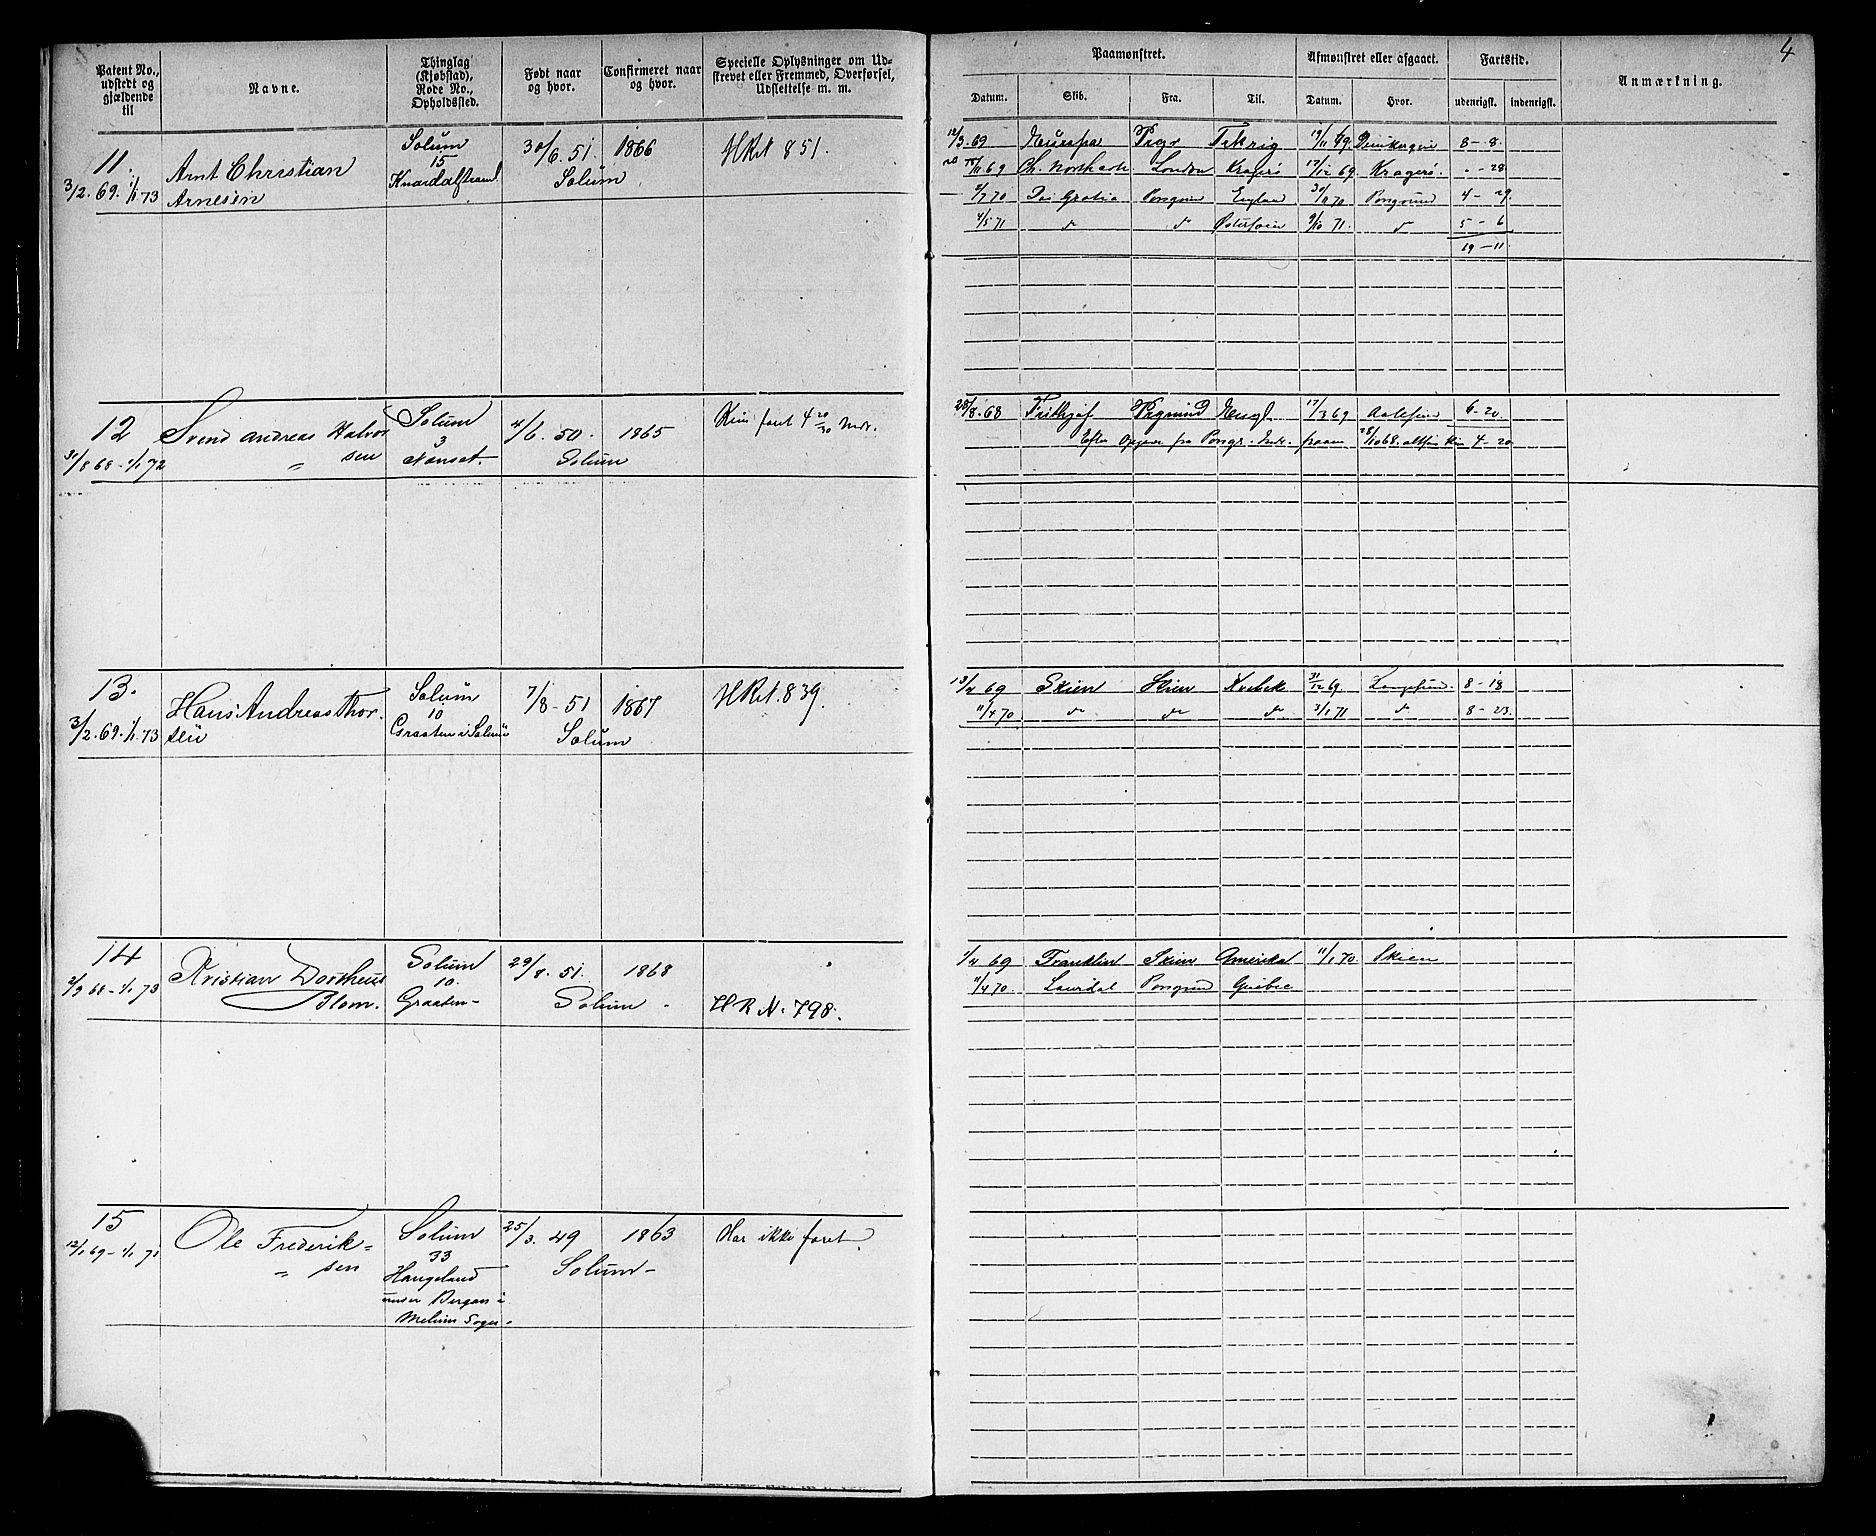 4
Patent No., udstedt og gjældende til
Navne.
Thinglag (Kjøbstad), Rode No., Opholdssted.
Født naar og hvor.
Confirmeret naar og hvor.
Specielle Oplysninger om Udskrevet eller Fremmed, Overførsel, Udslettelse m. m.
Paamønstret.
Afmønstret eller afgaaet.
Fartstid.
Anmærkning.
Datum. Skib. Fra. Til. Datum. Hvor. udenrigsk. indenrigsk.
11.
3/2. 69. 1/1 73
Arnt Christian
Arnesen
Solum
15
30/6. 51. 1866
Solum
HR N 851.
12/3. 69 Europa Pogr 19/11 69. 8 - 8.
15/11 69 London Kragerø 17/12 69. Kragerø. " - 28
70 Dei Gratia Porsgrund England 70 Porsgrund 4 - 29.
4/5 71 d d 9/10 71. d 5 - 6
19 - 11.
12
31/8 68 - 1/1 72
Svend Andreas Halvor
sen
Solum
3
Nenset.
4/6. 50. 1865
Solum
Kun faret 4 20/30 Mdr.
28/8. 68 Frithjof Engl. 17/3 69 6 - 20.
Efter Opgave fra 28/10 68. 4 - 20
13.
3/2. 69. 1/1. 73
Hans Andreas Thor
sen
Solum
10
Graaten i Solum
7/8 - 51 1867
Solum
HR N. 839.
69 Skien Skien Kvebek 31/12 69. Langesund. 8 - 18
11/4 70 d d d. 3/1 71 d 8 - 23.
14
2/9 68 - 1/1 73
Kristian Dortheus
Blom.
Solum
10.
Graaten -
29/8. 51. 1868
Solum -
HR N. 798.
1/4 69 Franklin Skien Amerika 11/1 70 Skien
11/4 70. Laurdal Porsgrund Quebec
15
12/1 69 - 1/1 71
Ole Frederik=
sen
Solum
33
Haugeland
under Bergan i
Melum Sogn.
25/3. 49 1863
Solum -
Har ikke faret.